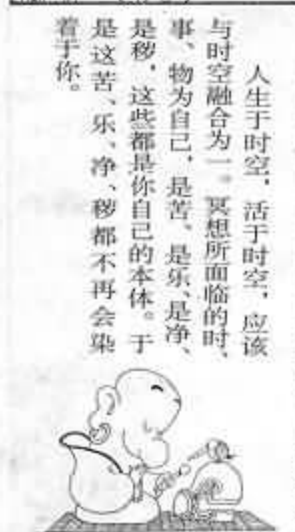 人生于时空，活于时空，应该
与时空融合为一。冥想所面临的时、
事、物为自己，是苦、是乐、是净、
是秽，这些都是你自己的本体。于
是这苦、乐、净、秽都不再会染
着于你。